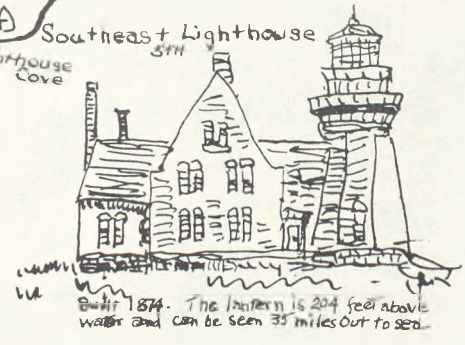 A
Southeast Lighthouse
Cove
Built 1874. The lantern is 204 feet above
water and can be seen 35 miles out to sea.